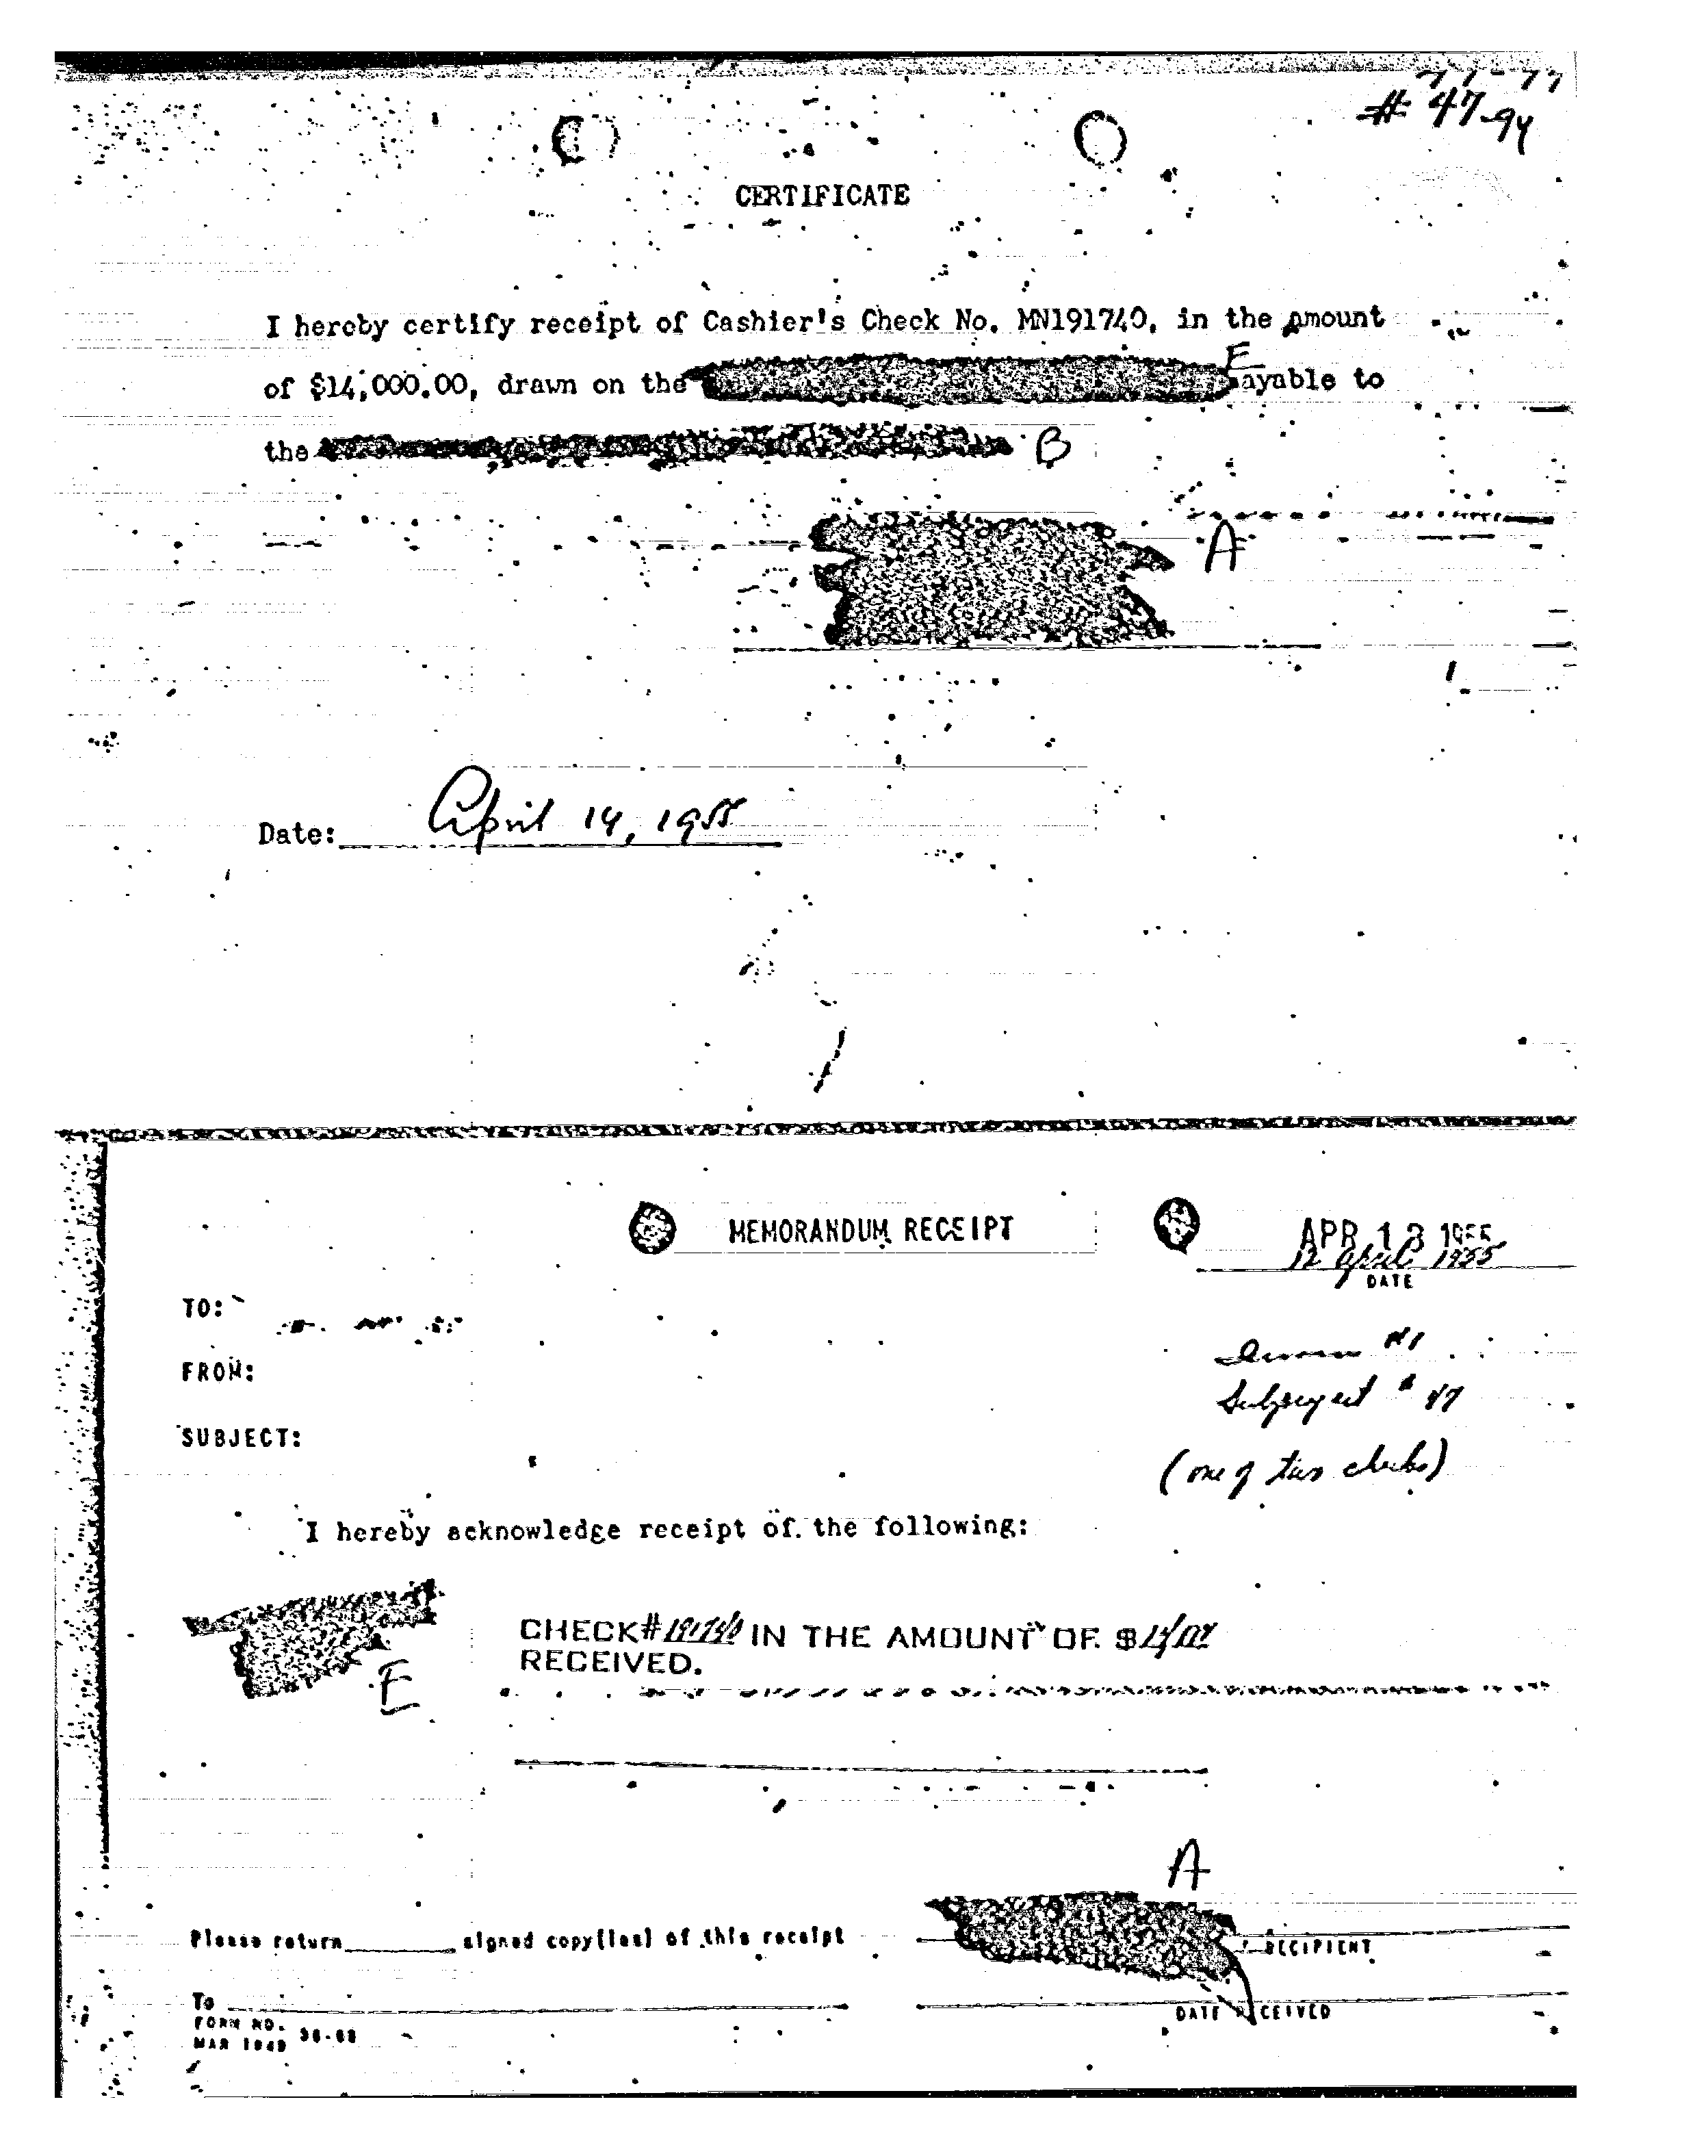 # 47-94
CERTIFICATE
I hereby certify receipt of Cashier's Check No. MN191740, in the amount
of $14,000.00, drawn on the E ayable to
the B
A
Date: April 14, 1955
MEMORANDUM RECEIPT
APR 13 1955
12 April 1955
DATE
TO:
FROM:
#1
SUBJECT:
Subproject # 47
(one of two checks)
I hereby acknowledge receipt of the following:
CHECK# 191740 IN THE AMOUNT OF $
RECEIVED.
E
A
Please return signed copy(ies) of this receipt
RECIPIENT
To
DATE RECEIVED
FORM NO.
MAR 1949 36-68